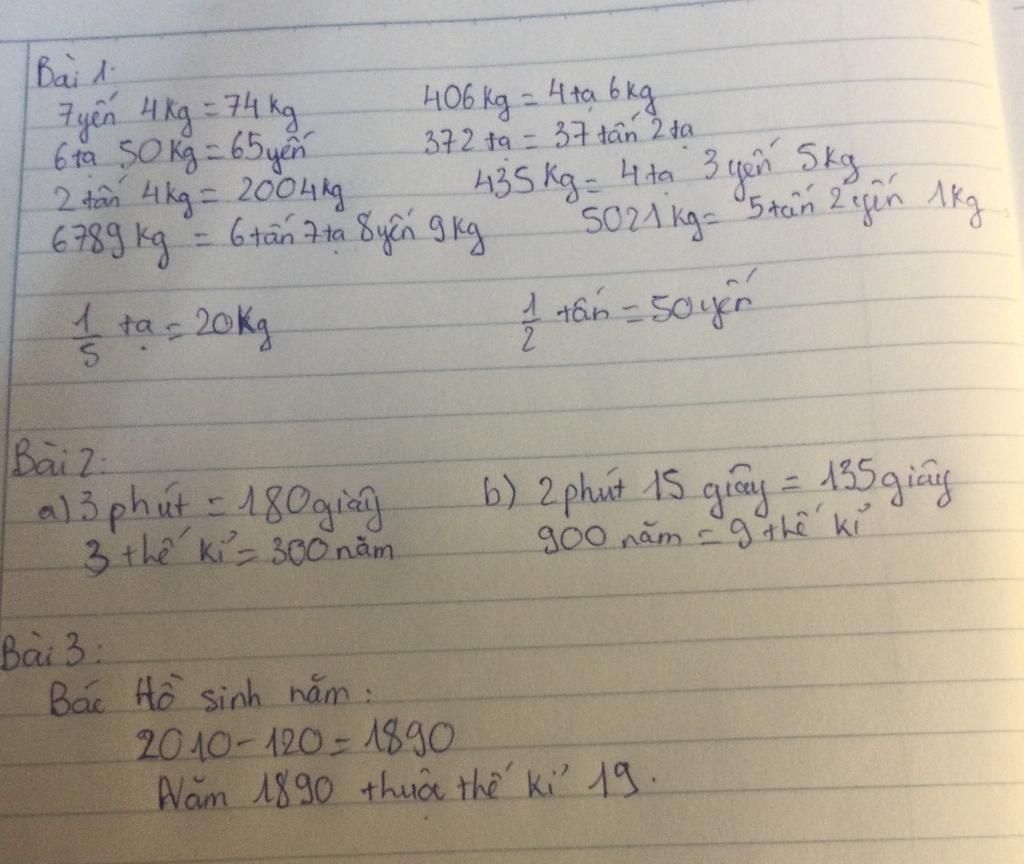 Bài 1:
7yến 4kg = 74kg 406kg = 4tạ 6kg
6tạ 50kg = 65yến 372 tạ = 37 tấn 2tạ
2 tấn 4kg = 2004kg 435kg = 4tạ 3yến 5kg
6789kg = 6tấn 7tạ 8yến 9kg 5021kg = 5tấn 2yến 1kg
1/5 tạ = 20kg 1/2 tấn = 50yến
Bài 2:
a) 3 phút = 180giây b) 2phút 15 giây = 135giây
3 thế kỉ = 300năm 900 năm = 9 thế kỉ
Bài 3:
Bác Hồ sinh năm:
2010 - 120 = 1890
Năm 1890 thuộc thế kỉ 19.